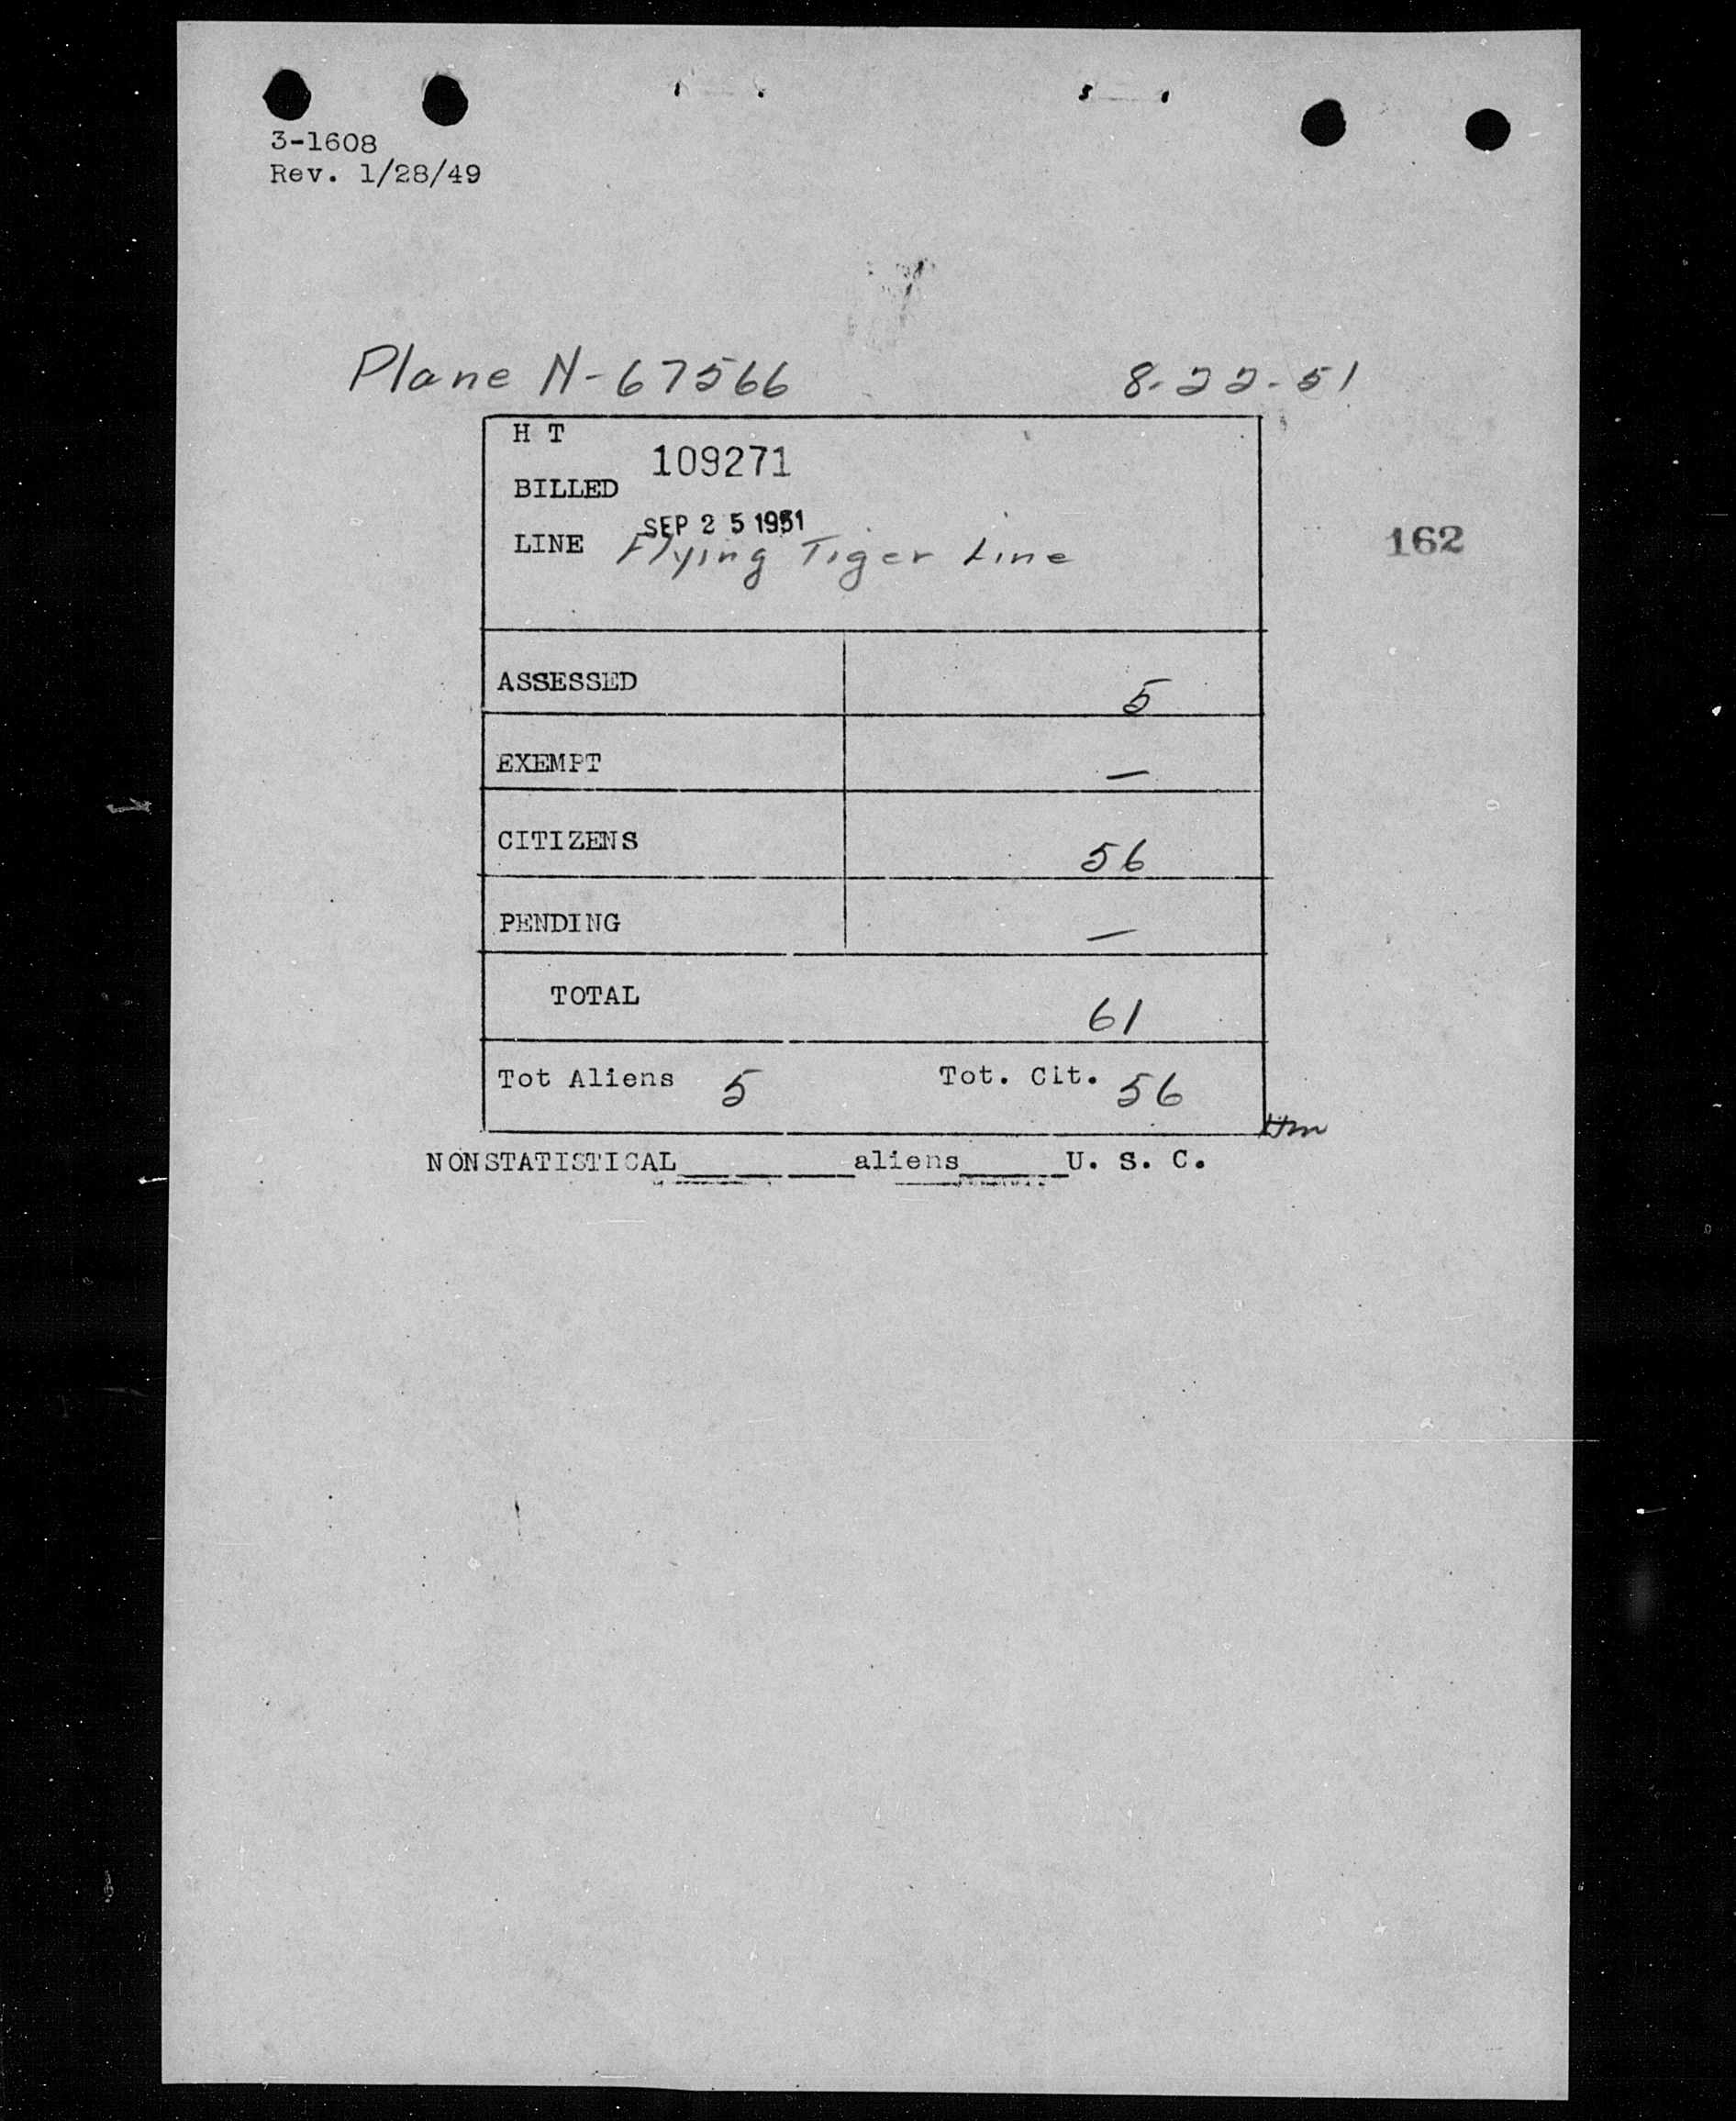 3-1608
Rev. 1/28/49
Plane N-67566 8-22-51
H T
109271
BILLED
SEP 25 1951
LINE Flying Tiger Line
162
ASSESSED 5
EXEMPT —
CITIZENS 56
PENDING —
TOTAL 61
Tot Aliens 5 Tot. Cit. 56
NONSTATISTICAL__________aliens______U. S. C.